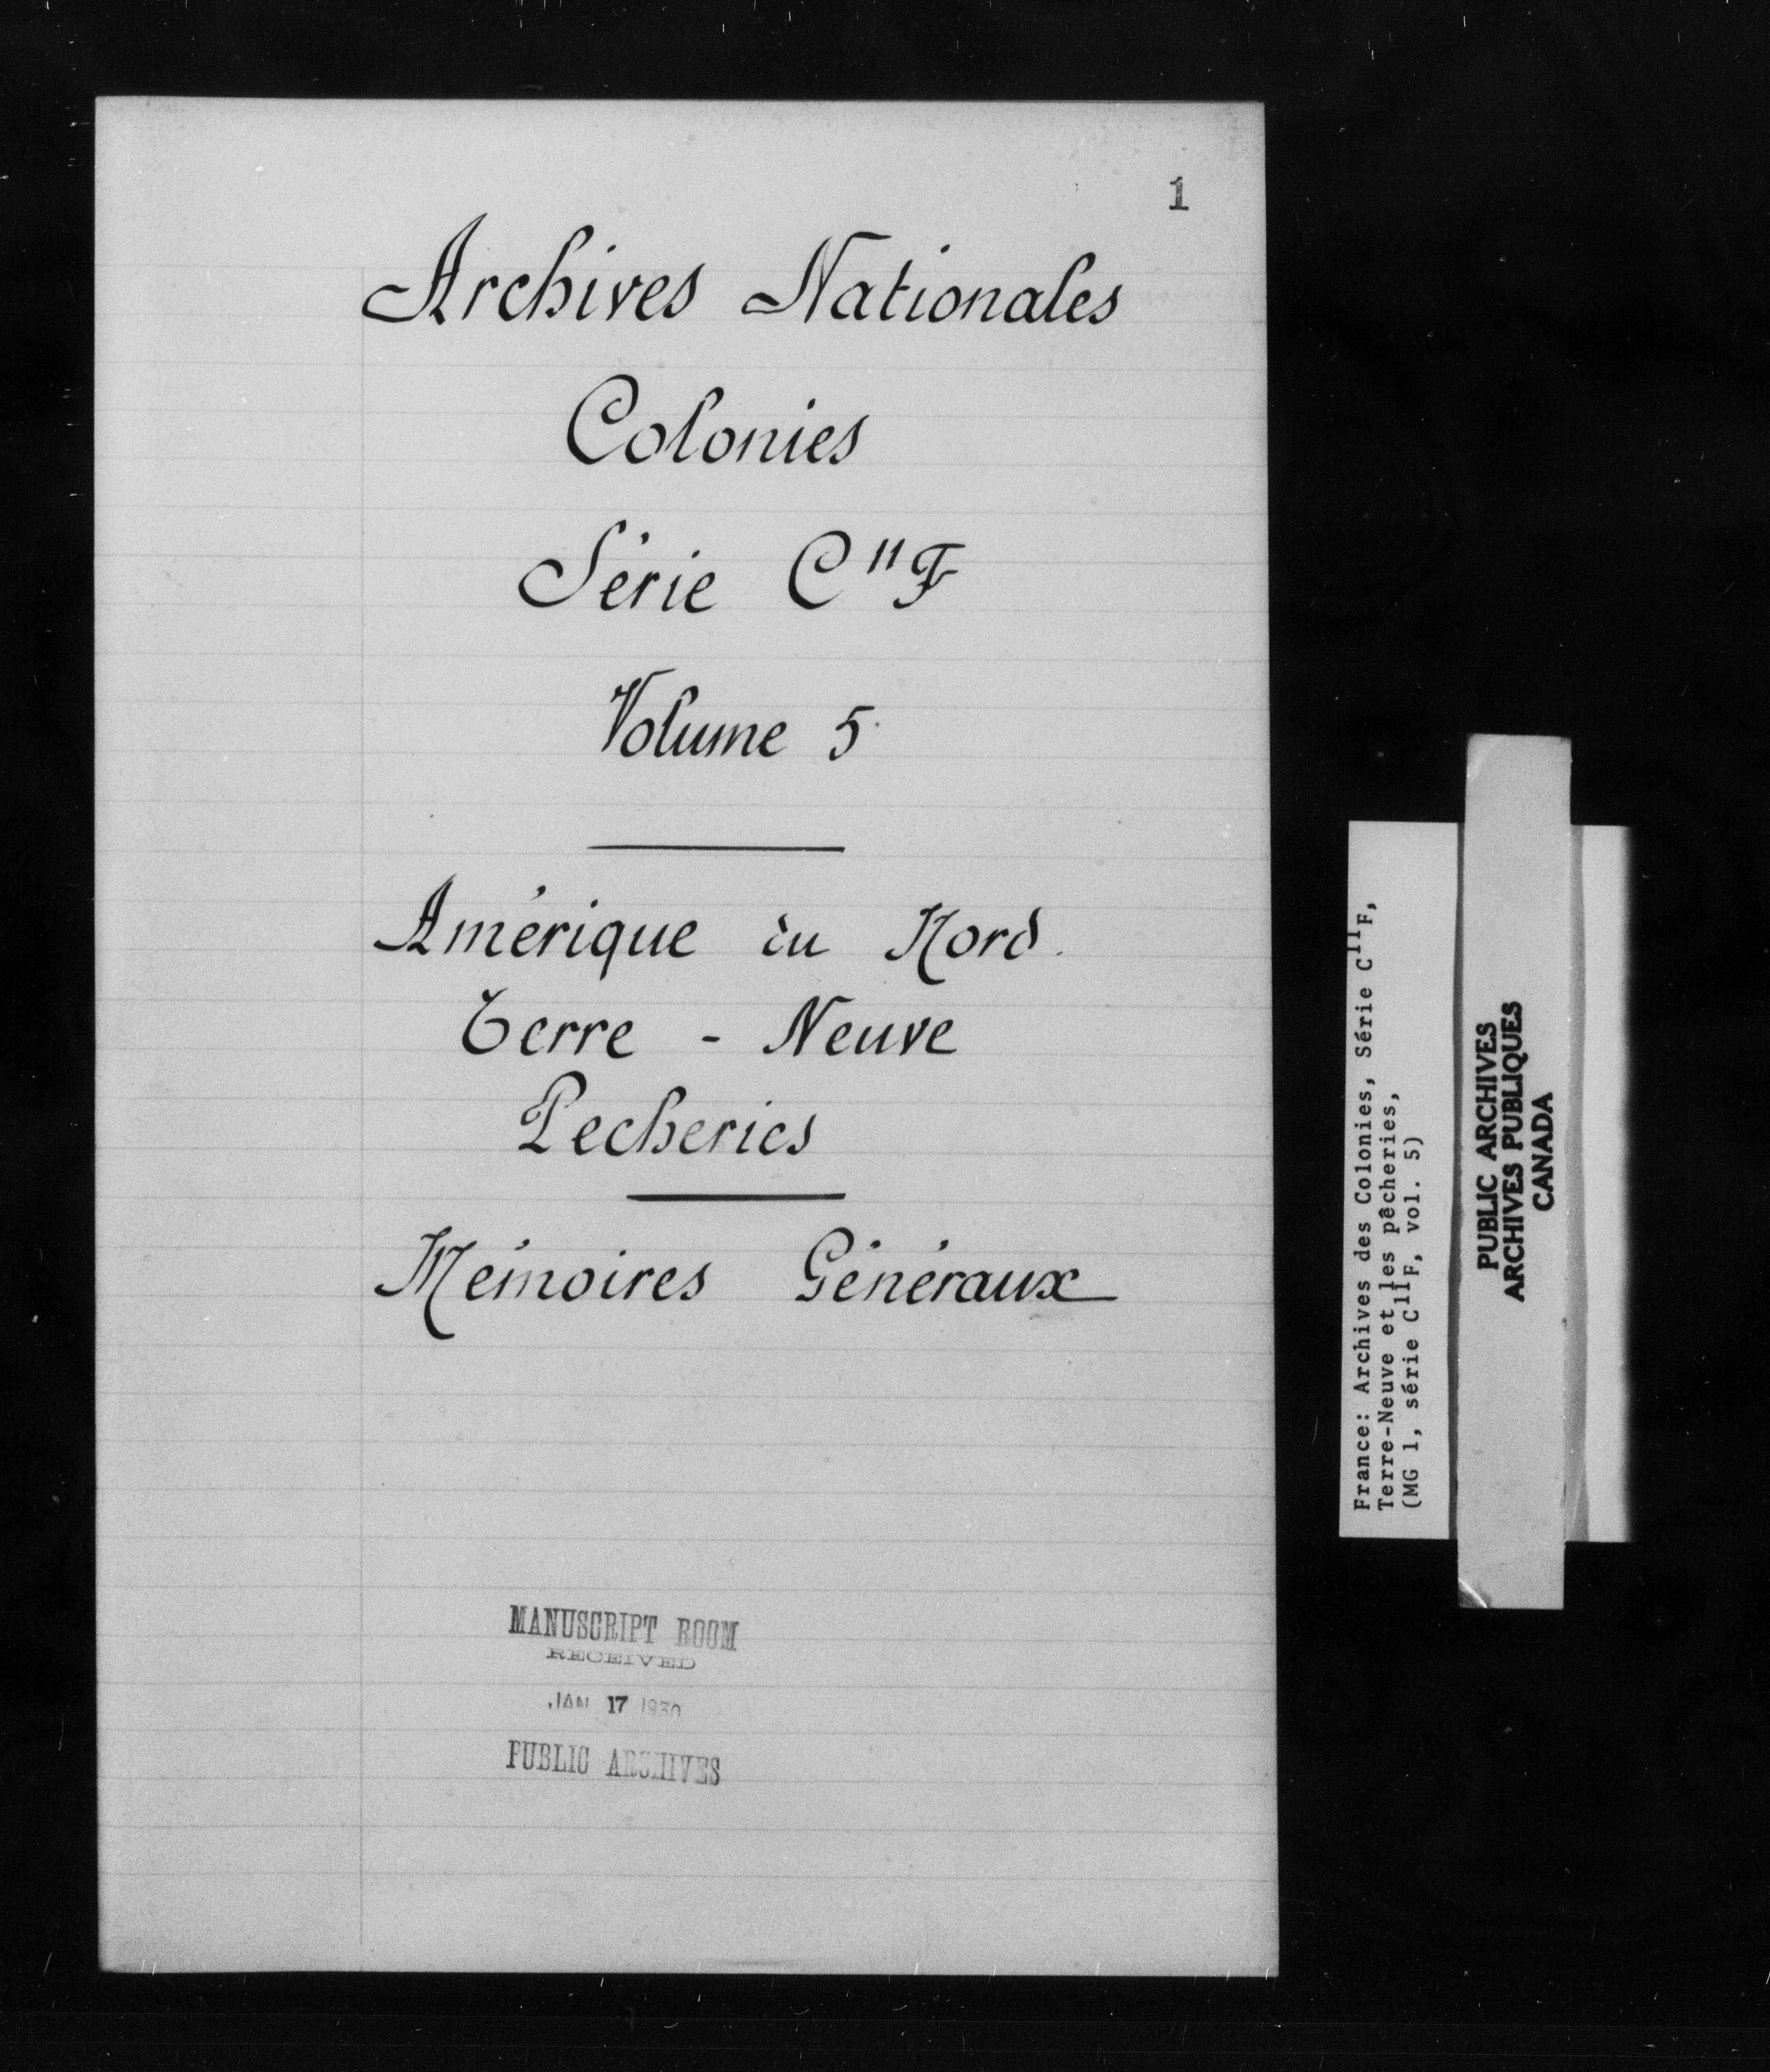 1
Archives Nationales
Colonies
Série C¹¹F
Volume 5
Amérique du Nord.
Terre - Neuve
Pecheries
Mémoires Généraux
MANUSCRIPT ROOM
RECEIVED
JAN 17 1930
PUBLIC ARCHIVES
France: Archives des Colonies, Série C¹¹F,
Terre-Neuve et les pêcheries,
(MG 1, série C¹¹F, vol. 5)
PUBLIC ARCHIVES
ARCHIVES PUBLIQUES
CANADA